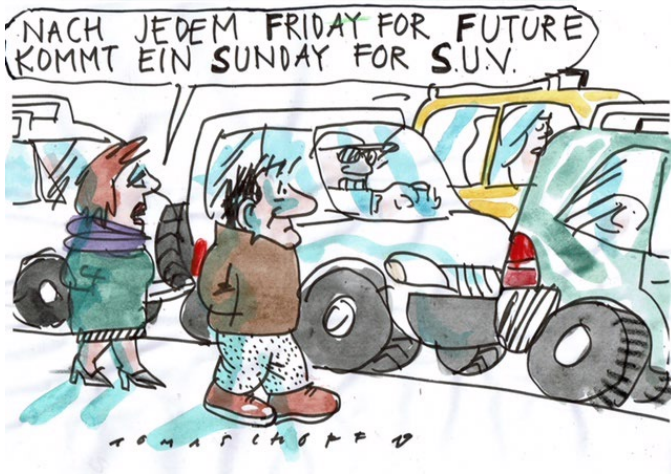 NACH JEDEM FRIDAY FOR FUTURE
KOMMT EIN SUNDAY FOR S.U.V.
TOMASCHOFF